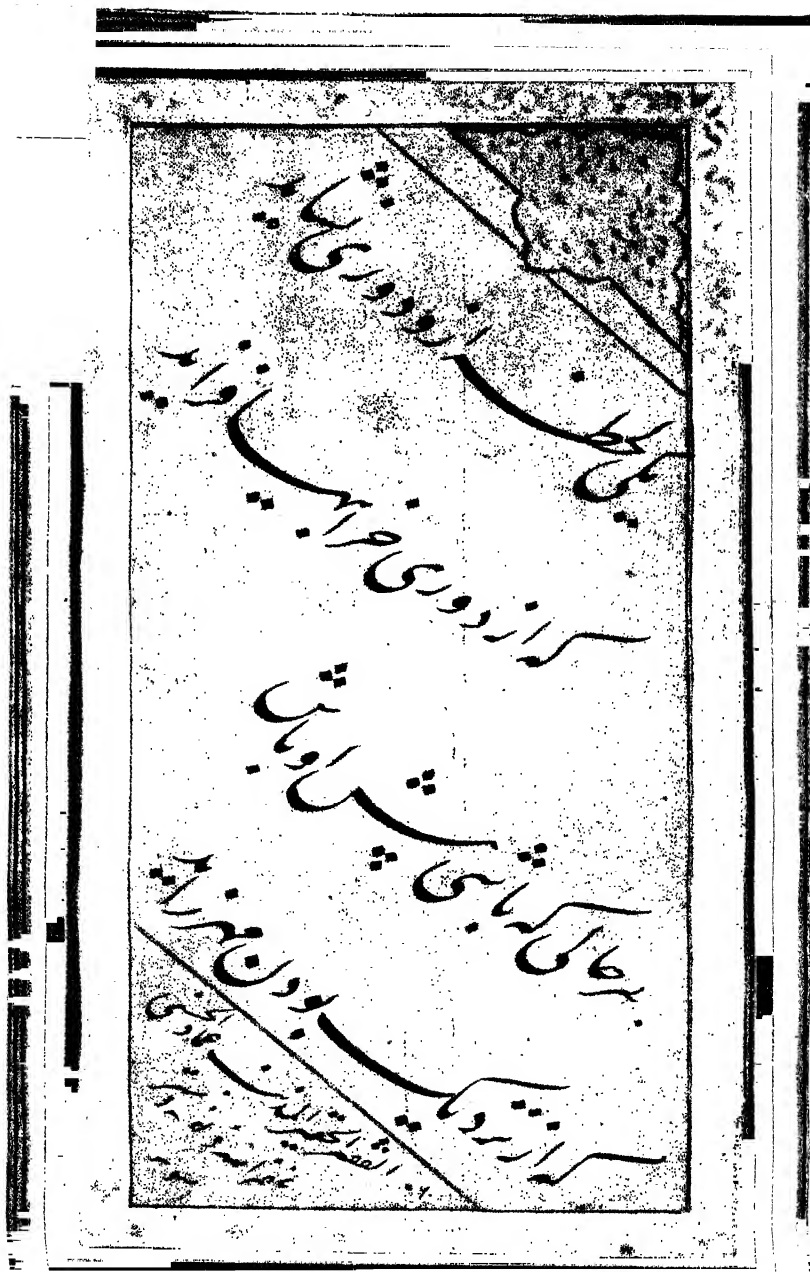 یکی لحظه از و دوری نشاید
که از دوری خرابیها فزاید
بهر حالی که باشی پیش او باش
که از نزدیک بودن مهر زاید
الفقیر الحقیر المذنب
عماد الحسنی
غفر